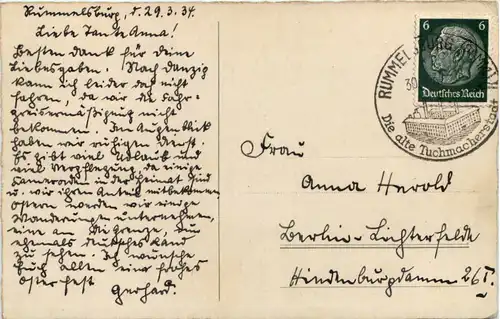 Rummelsburg, d. 29.3.34.
Liebe Tante Anna!
Besten Dank für deine
Liebesgaben. Nach Danzig
kann ich leider das nicht
fahren, da wir die Fahr-
preisermäßigung nicht
bekommen. Im Augenblick
haben wir ruhigen Dienst.
Es gibt viel Urlaub und
viel Verpflegung, da einige
Kameraden in der Heimat sind
u. wir ihren Anteil mitbekommen.
Ostern werden wir einige
Wanderungen unternehmen,
eine an die Grenze, um
ehemals deutsches Land
zu sehen. Ich wünsche
Euch allen ein frohes
Osterfest
Gerhard.
6 6
Deutsches Reich
RUMMELSBURG
30
Die alte Tuchmacherstadt
Frau
Anna Herold
Berlin-Lichterfelde
Hindenburgdamm 26 I.